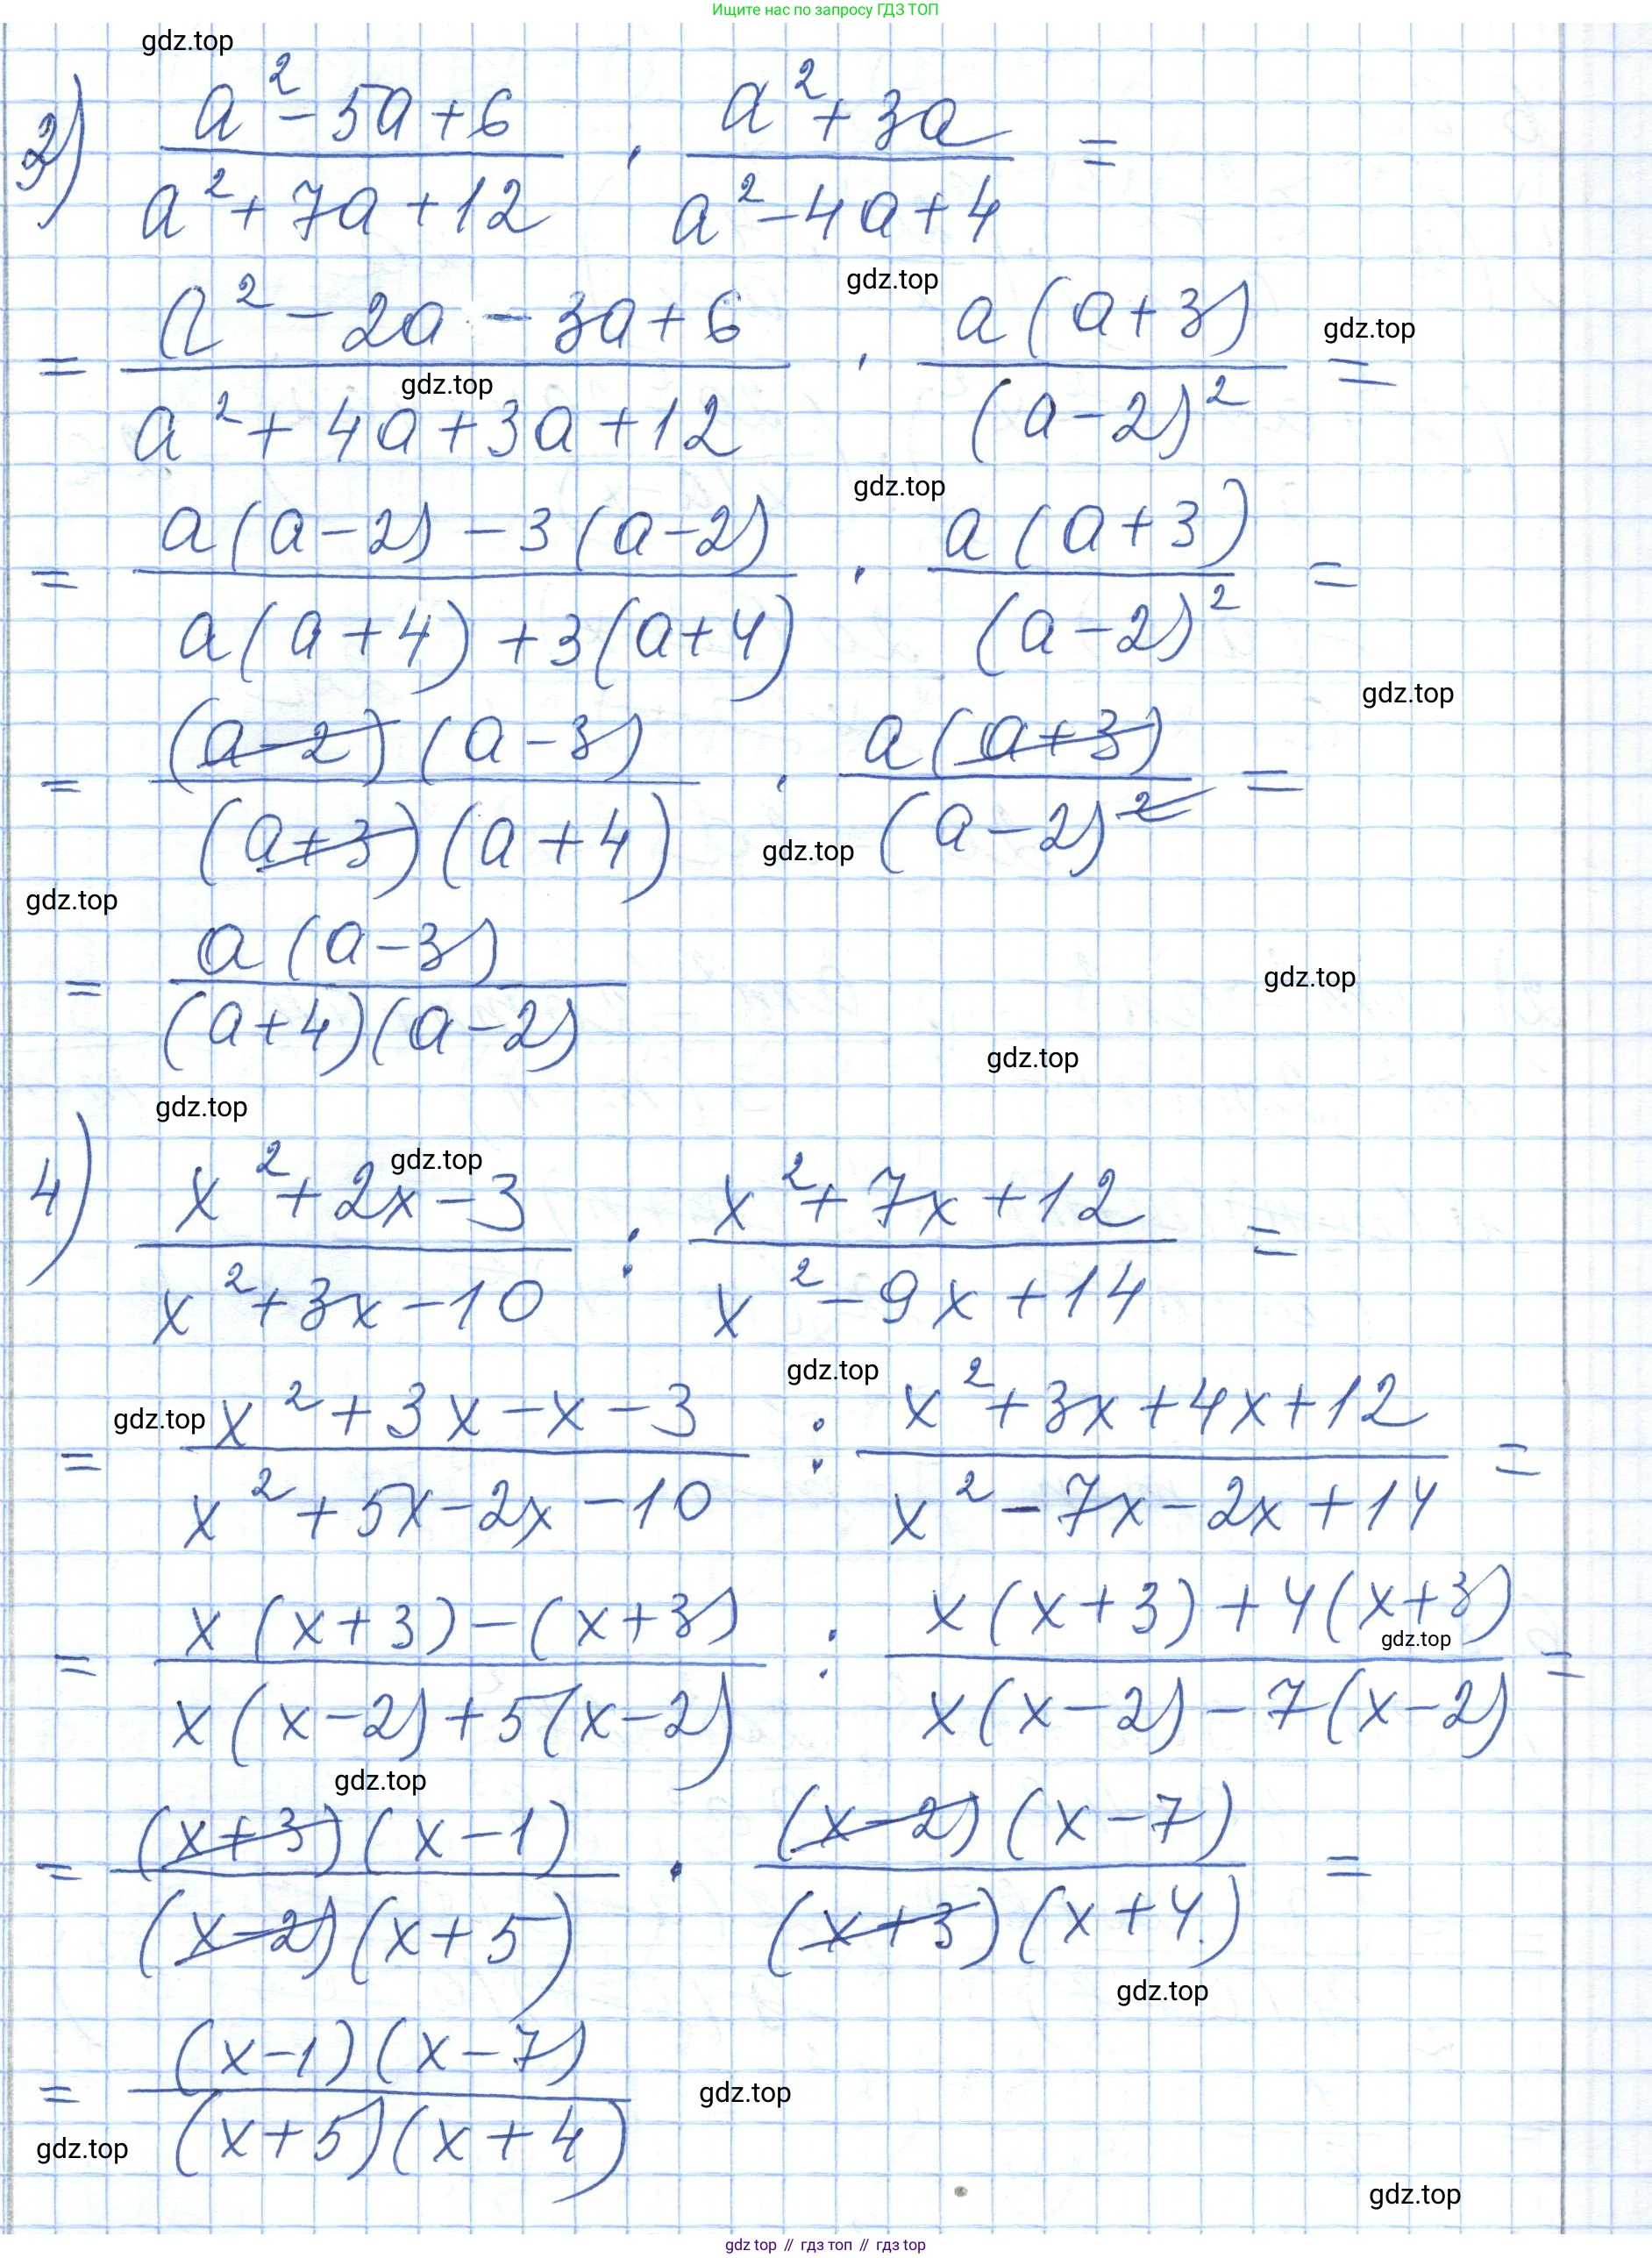 Ищите нас по запросу ГДЗ ТОП
gdz.top
2) (a² - 5a + 6)/(a² + 7a + 12) · (a² + 3a)/(a² - 4a + 4) =
gdz.top
gdz.top
= (a² - 2a - 3a + 6)/(a² + 4a + 3a + 12) · a(a + 3)/(a - 2)² =
gdz.top
gdz.top
= (a(a - 2) - 3(a - 2))/(a(a + 4) + 3(a + 4)) · a(a + 3)/(a - 2)² =
gdz.top
= (a - 2)(a - 3)/((a + 3)(a + 4)) · a(a + 3)/(a - 2)² =
gdz.top
gdz.top
= a(a - 3)/((a + 4)(a - 2))
gdz.top
gdz.top
gdz.top
gdz.top
4) (x² + 2x - 3)/(x² + 3x - 10) : (x² + 7x + 12)/(x² - 9x + 14) =
gdz.top
gdz.top
= (x² + 3x - x - 3)/(x² + 5x - 2x - 10) : (x² + 3x + 4x + 12)/(x² - 7x - 2x + 14) =
= (x(x + 3) - (x + 3))/(x(x - 2) + 5(x - 2)) : (x(x + 3) + 4(x + 3))/(x(x - 2) - 7(x - 2)) =
gdz.top
gdz.top
= (x + 3)(x - 1)/((x - 2)(x + 5)) · (x - 2)(x - 7)/((x + 3)(x + 4)) =
gdz.top
= (x - 1)(x - 7)/((x + 5)(x + 4))
gdz.top
gdz.top
gdz.top
gdz top // гдз топ // gdz top